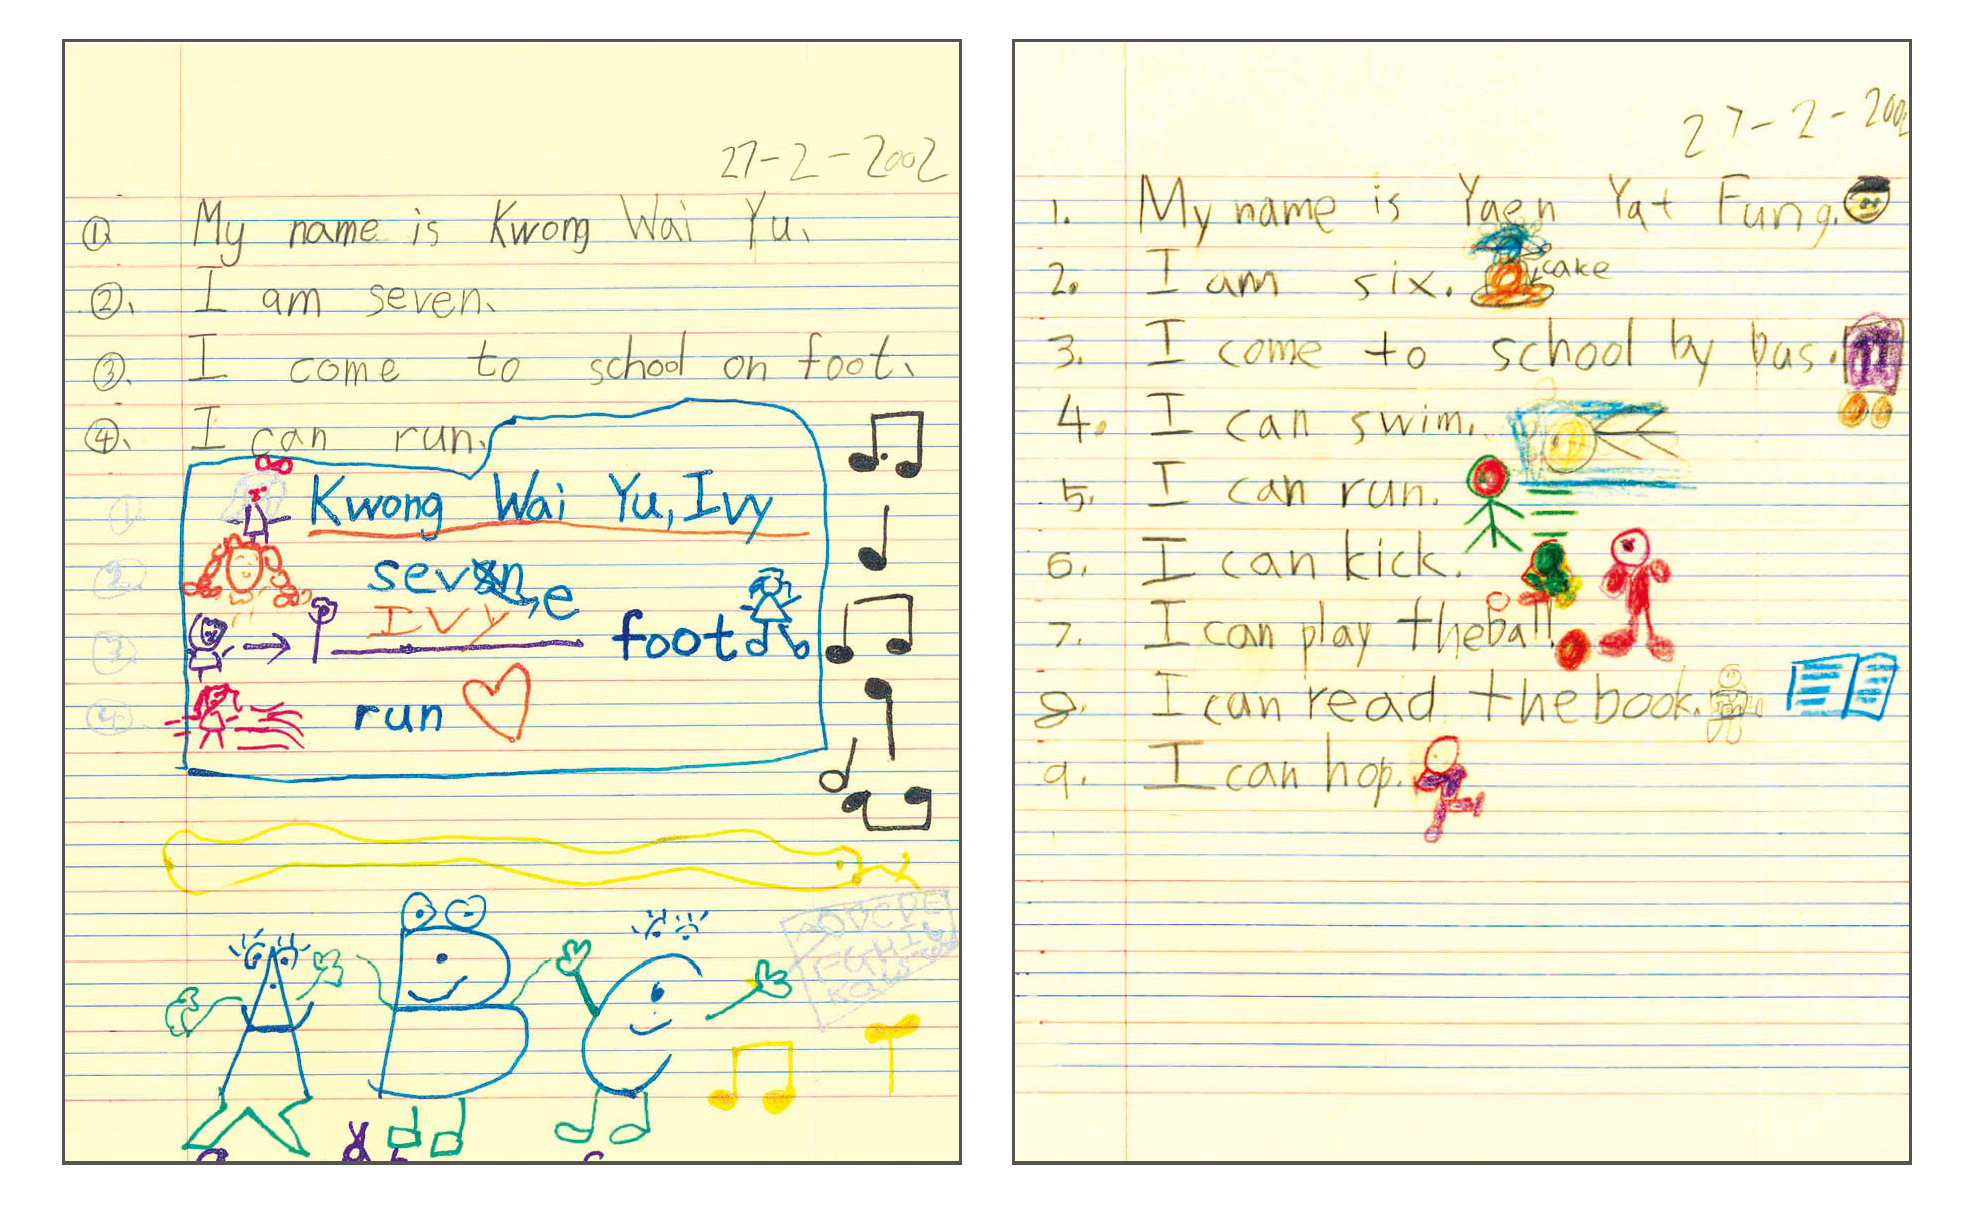 27-2-2002
① My name is Kwong Wai Yu.
②. I am seven.
③. I come to school on foot.
④. I can run.
① Kwong Wai Yu, Ivy
2. seven, e
3 IVY foot
4. run
A B C
27-2-2002
1. My name is Yaen Yat Fung.
2. I am six. cake
3. I come to school by bus. 11
4. I can swim.
5. I can run.
6. I can kick.
7. I can play the ball.
8. I can read the book.
9. I can hop.